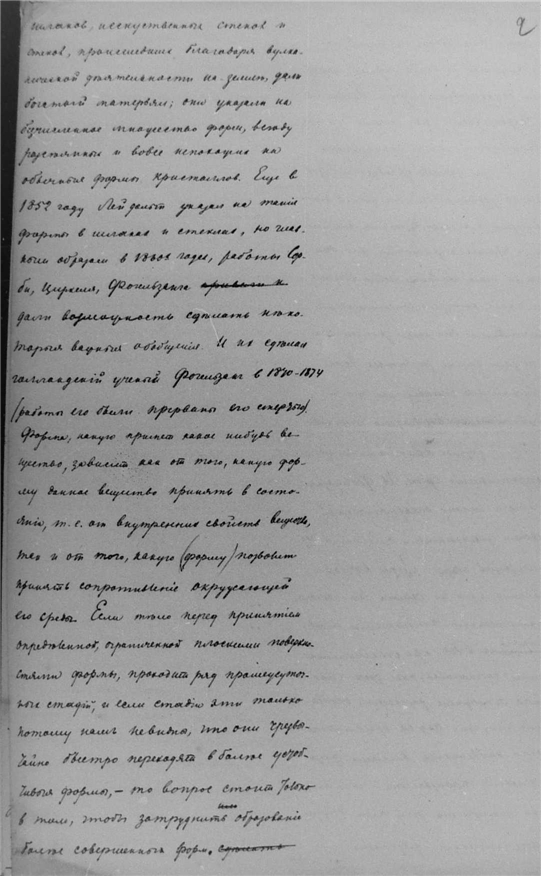 2
шлаковъ, искусственныхъ стеколъ и
стеколъ, происшедшихъ благодаря вулка-
нической дѣятельности на землѣ, далъ
богатый матерьялъ; они указали на
безчисленное множество формъ, всюду
разсѣянныхъ и вовсе непохожихъ на
обычныя формы кристалловъ. Еще в
1852 году Лейдольтъ указалъ на такія
формы в шлакахъ и стеклахъ, но глав-
нымъ образомъ в годахъ, работы Сор-
би, Циркеля, Фогельзанга
дали возможность сдѣлать нѣко-
торыя важныя обобщенія. И ихъ сдѣлалъ
голландскій ученый Фогельзангъ в 1870-1874
(работы его были прерваны его смертью)
Форма, какую приметъ какое нибудь ве-
щество, зависитъ какъ отъ того, какую фор-
му данное вещество принять в состо-
яніи, т.е. отъ внутреннихъ свойствъ вещества,
такъ и отъ того, какую (форму) позволитъ
принять сопротивленіе окружающей
его среды. Если тѣло передъ принятіемъ
опредѣленной, ограниченной плоскими поверхно-
стями формы, проходитъ рядъ промежуточ-
ныхъ стадій, и если стадіи эти только
потому намъ невидны, что они чрезвы-
чайно быстро переходятъ в болѣе устой-
чивыя формы, – то вопросъ стоитъ только
в томъ, чтобы затруднить образованіе
болѣе совершенныхъ формъ. сдѣлать